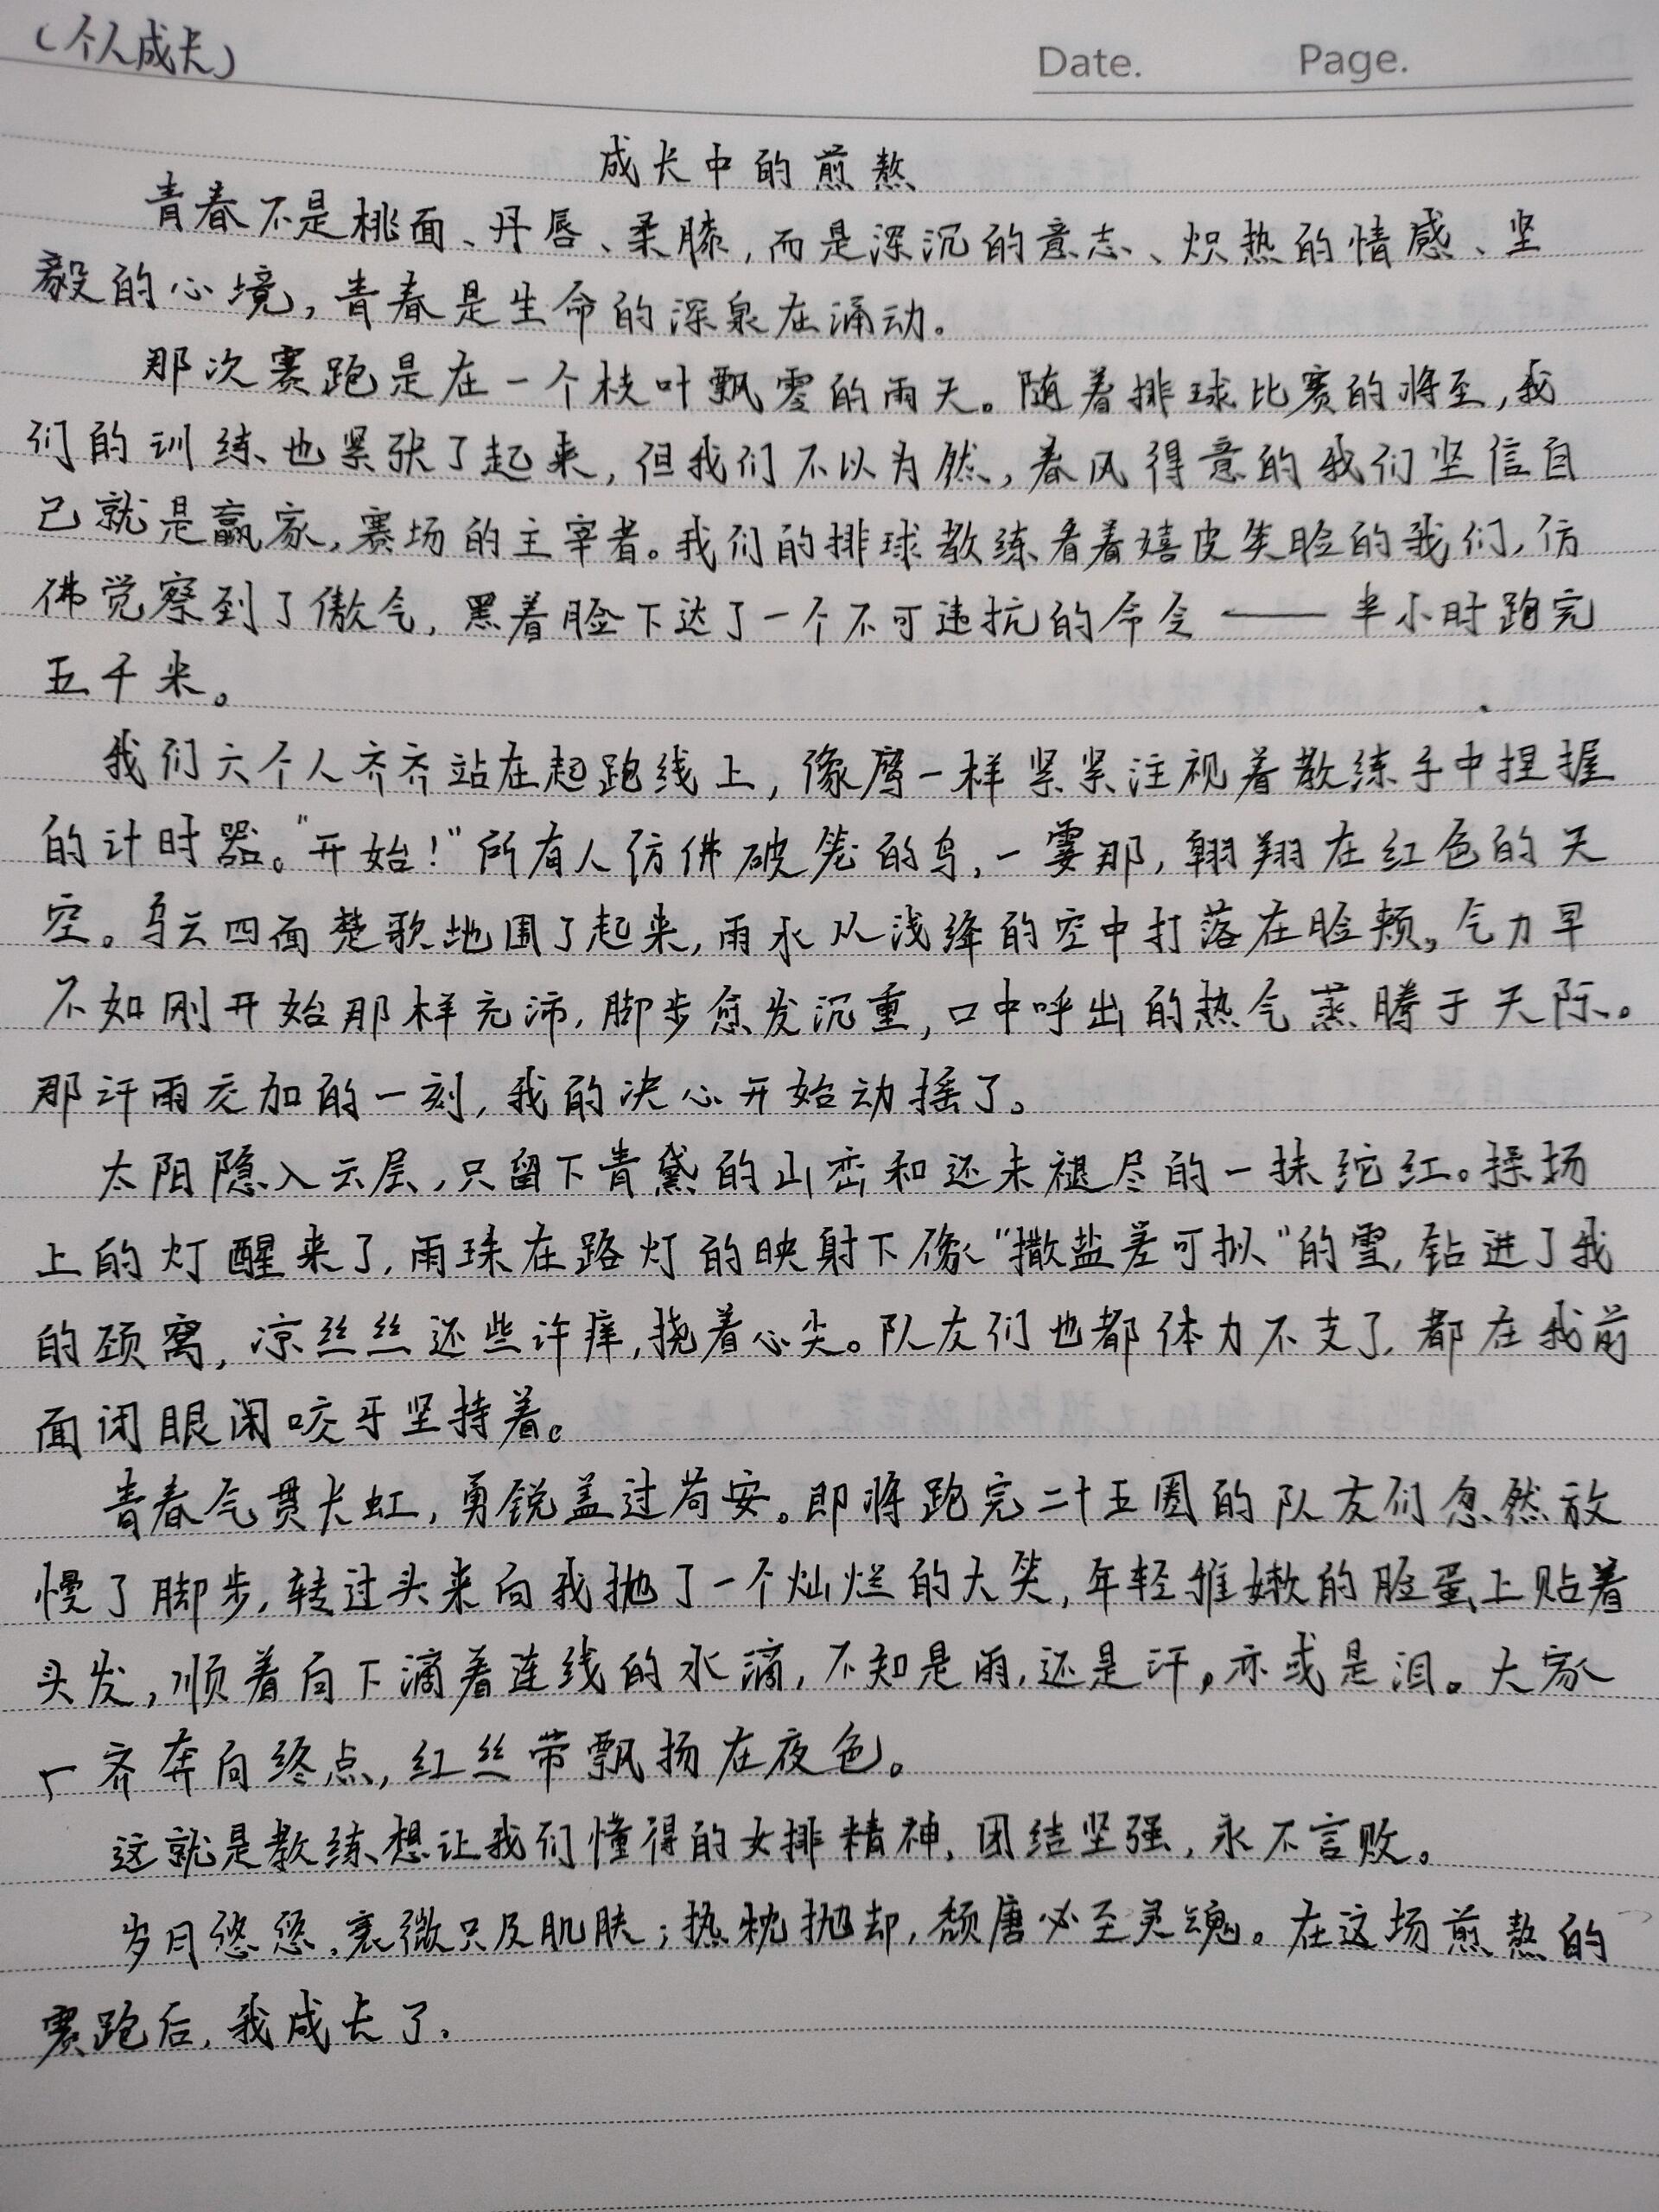 (个人成长)
Date. Page.
成长中的煎熬
青春不是桃面、丹唇、柔膝,而是深沉的意志、炽热的情感、坚
毅的心境,青春是生命的深泉在涌动。
那次赛跑是在一个枝叶飘零的雨天。随着排球比赛的将至,我
们的训练也紧张了起来,但我们不以为然,春风得意的我们坚信自
己就是赢家,赛场的主宰者。我们的排球教练看着嬉皮笑脸的我们,仿
佛觉察到了傲气,黑着脸下达了一个不可违抗的命令——半小时跑完
五千米。
我们六个人齐齐站在起跑线上,像鹰一样紧紧注视着教练手中捏握
的计时器。"开始!"所有人仿佛破笼的鸟,一霎那,翱翔在红色的天
空。乌云四面楚歌地围了起来,雨水从浅绛的空中打落在脸颊,气力早
不如刚开始那样充沛,脚步愈发沉重,口中呼出的热气蒸腾于天际。
那汗雨交加的一刻,我的决心开始动摇了。
太阳隐入云层,只留下青黛的山峦和还未褪尽的一抹纶红。操场
上的灯醒来了,雨珠在路灯的映射下像"撒盐差可拟"的雪,钻进了我
的颈窝,凉丝丝还些许痒,挠着心尖。队友们也都体力不支了,都在我前
面闭眼闭咬牙坚持着。
青春气贯长虹,勇锐盖过荷安。即将跑完二十五圈的队友们忽然放
慢了脚步,转过头来向我抛了一个灿烂的大笑,年轻稚嫩的脸蛋上贴着
头发,顺着向下滴着连线的水滴,不知是雨,还是汗,亦或是泪。大家
一齐奔向终点,红丝带飘扬在夜色。
这就是教练想让我们懂得的女排精神,团结坚强,永不言败。
岁月悠悠,衰微只及肌肤;热枕抛却,颓唐必至灵魂。在这场煎熬的
赛跑后,我成长了.